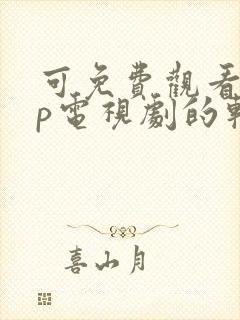 可免費觀看
p電視劇的
喜山月